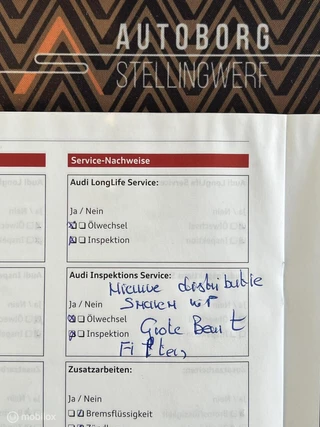 AUTOBORG
STELLINGWERF
Service-Nachweise
Audi LongLife Service:
Ja / Nein
Ölwechsel
Inspektion
Audi Inspektions Service:
Nieuwe distributie
Ja / Nein
Ölwechsel
Grote Beurt
Inspektion
Filters
Zusatzarbeiten:
Bremsflüssigkeit
mobilox